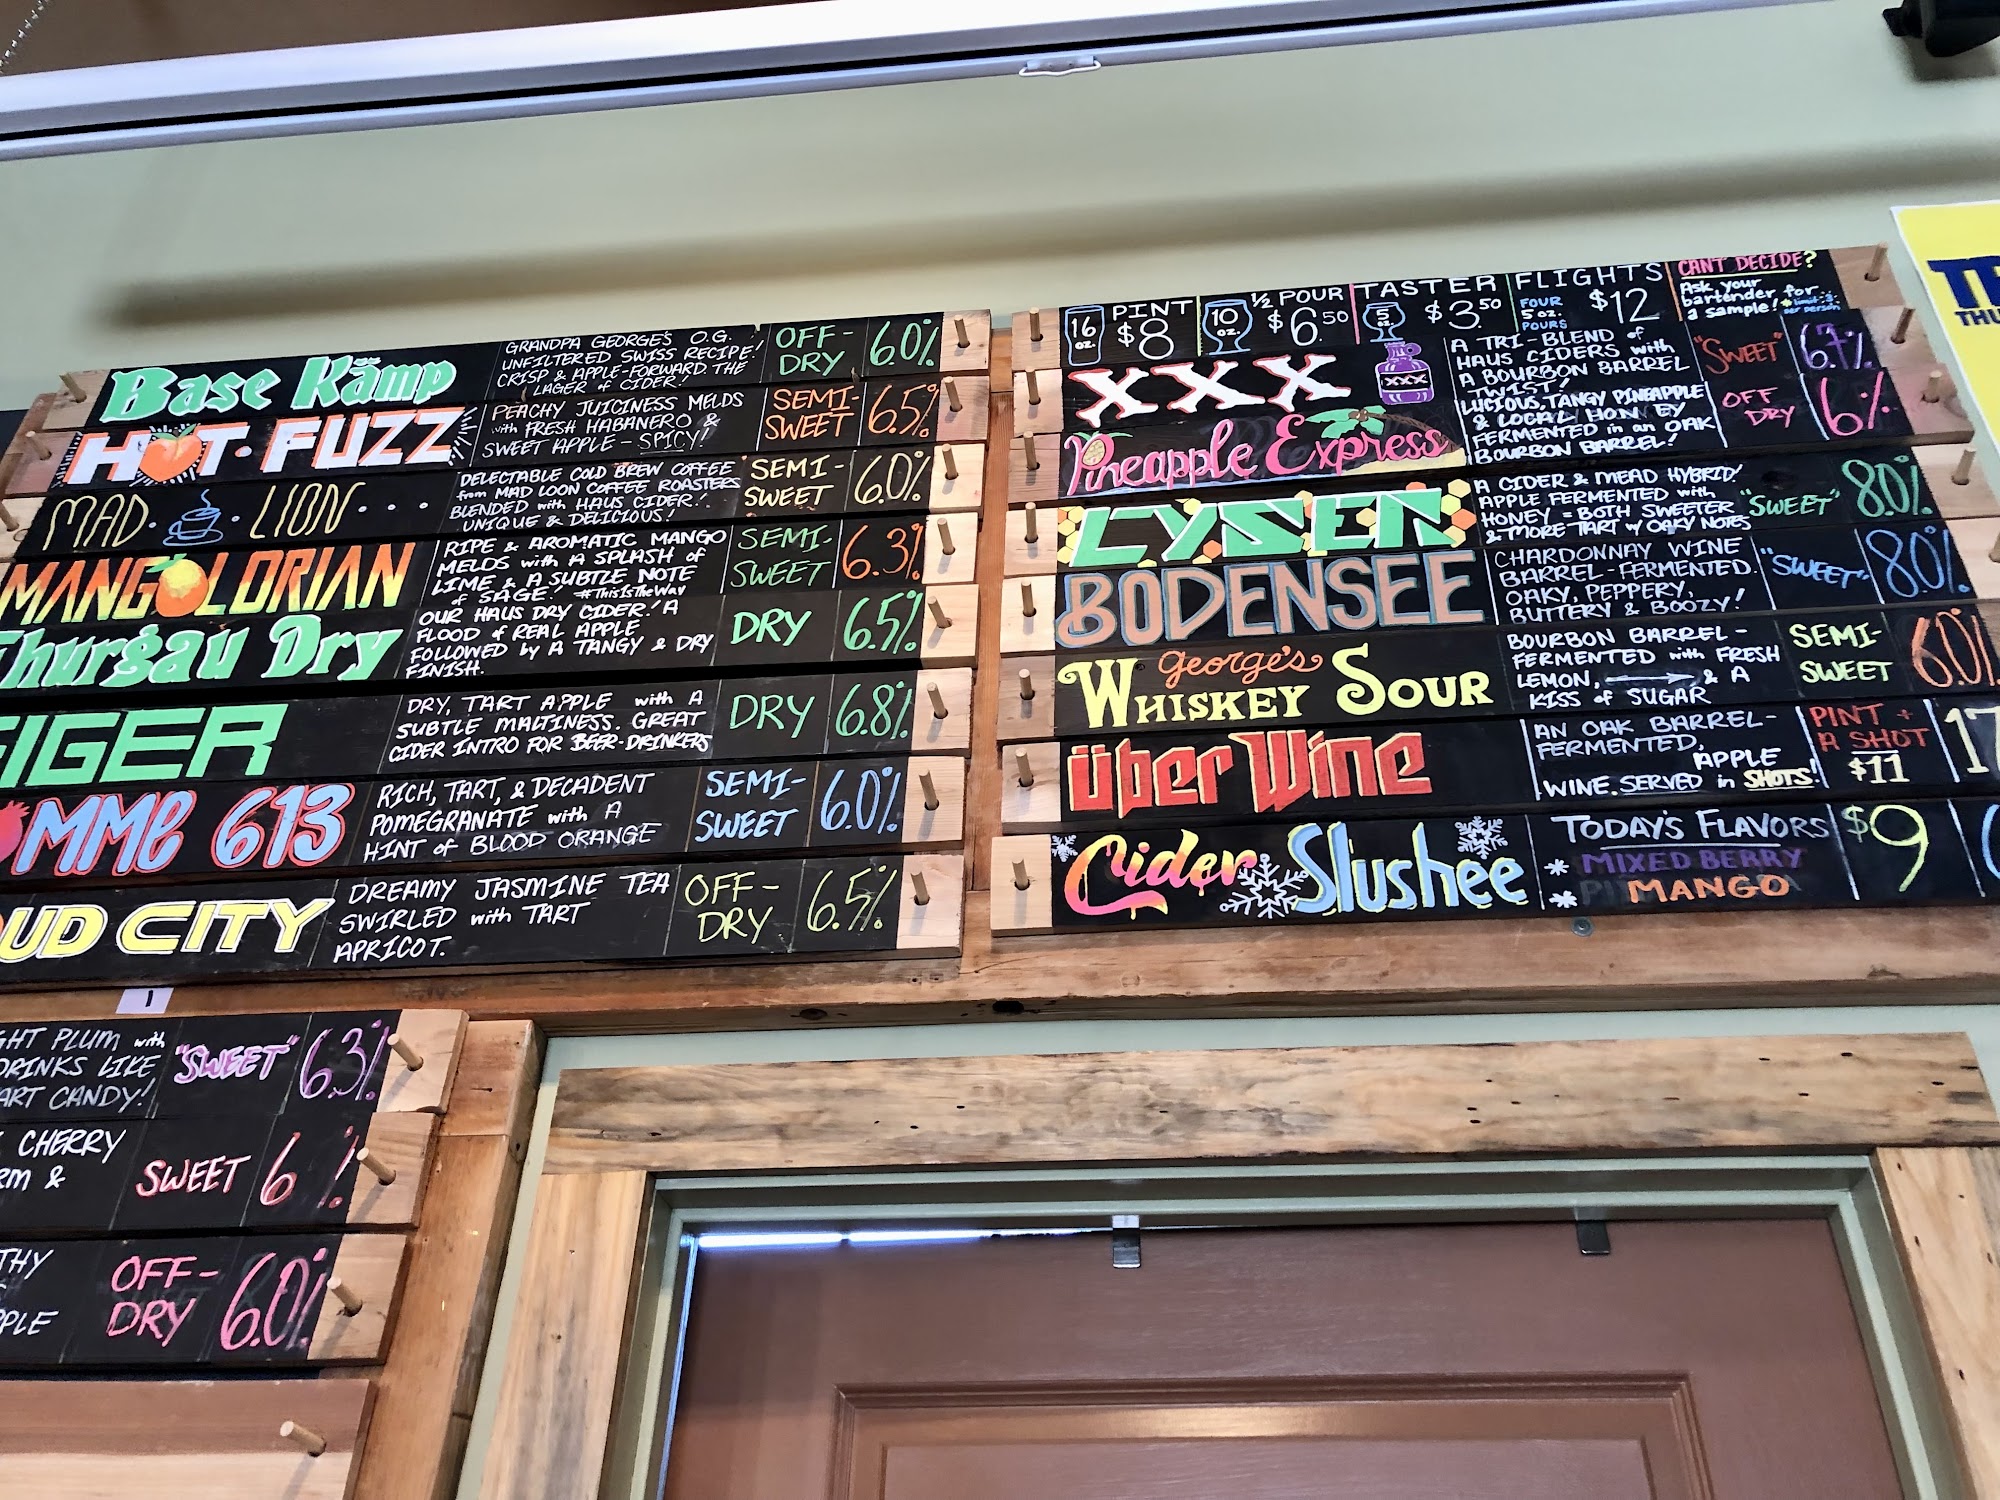 Base Kämp
GRANDPA GEORGE'S O.G.
UNFILTERED SWISS RECIPE!
CRISP & APPLE-FORWARD. THE
LAGER of CIDER!
OFF-
DRY
6.0%
HOT·FUZZ
PEACHY JUICINESS MELDS
with FRESH HABANERO &
SWEET APPLE - SPICY!
SEMI-
SWEET
6.5%
MAD· LION· · ·
DELECTABLE COLD BREW COFFEE
from MAD LOON COFFEE ROASTERS
BLENDED with HAUS CIDER!
UNIQUE & DELICIOUS!
SEMI-
SWEET
6.0%
MANGOLORIAN
RIPE & AROMATIC MANGO
MELDS with A SPLASH of
LIME & A SUBTLE NOTE
of SAGE! #ThisIsTheWay
SEMI-
SWEET
6.3%
Thurgau Dry
OUR HAUS DRY CIDER! A
FLOOD of REAL APPLE
FOLLOWED by A TANGY & DRY
FINISH.
DRY
6.5%
EIGER
DRY, TART APPLE with A
SUBTLE MALTINESS. GREAT
CIDER INTRO FOR BEER-DRINKERS
DRY
6.8%
OMME 613
RICH, TART, & DECADENT
POMEGRANATE with A
HINT of BLOOD ORANGE
SEMI-
SWEET
6.0%
OUD CITY
DREAMY JASMINE TEA
SWIRLED with TART
APRICOT.
OFF-
DRY
6.5%
1
GHT PLUM with
DRINKS LIKE
ART CANDY!
"SWEET"
6.3%
CHERRY
RM &
SWEET
6 %
THY
PPLE
OFF-
DRY
6.0%
16
oz.
PINT
$8
10
oz.
½ POUR
$6.50
5
oz.
TASTER
$3.50
FLIGHTS
FOUR
5 oz.
POURS
$12
CANT DECIDE?
Ask your
bartender for
a sample! *limit 3
per person
XXX
XXX
A TRI-BLEND of
HAUS CIDERS with
A BOURBON BARREL
TWIST!
"SWEET"
6.7%
Pineapple Express
LUCIOUS, TANGY PINEAPPLE
& LOCAL HON EY
FERMENTED in an OAK
BOURBON BARREL!
OFF
DRY
6%
LYSER
A CIDER & MEAD HYBRID!
APPLE FERMENTED with
HONEY = BOTH SWEETER
& MORE TART w/ OAKY NOTES
"SWEET"
8.0%
BODENSEE
CHARDONNAY WINE
BARREL-FERMENTED.
OAKY, PEPPERY,
BUTTERY & BOOZY!
"SWEET"
8.0%
George's
WHISKEY SOUR
BOURBON BARREL-
FERMENTED with FRESH
LEMON, & A
KISS of SUGAR
SEMI-
SWEET
6.0%
über Wine
AN OAK BARREL-
FERMENTED,
APPLE
WINE. SERVED in SHOTS!
PINT +
A SHOT
$11
17
Cider Slushee
TODAY'S FLAVORS
* MIXED BERRY
* MANGO
$9
TH
THU